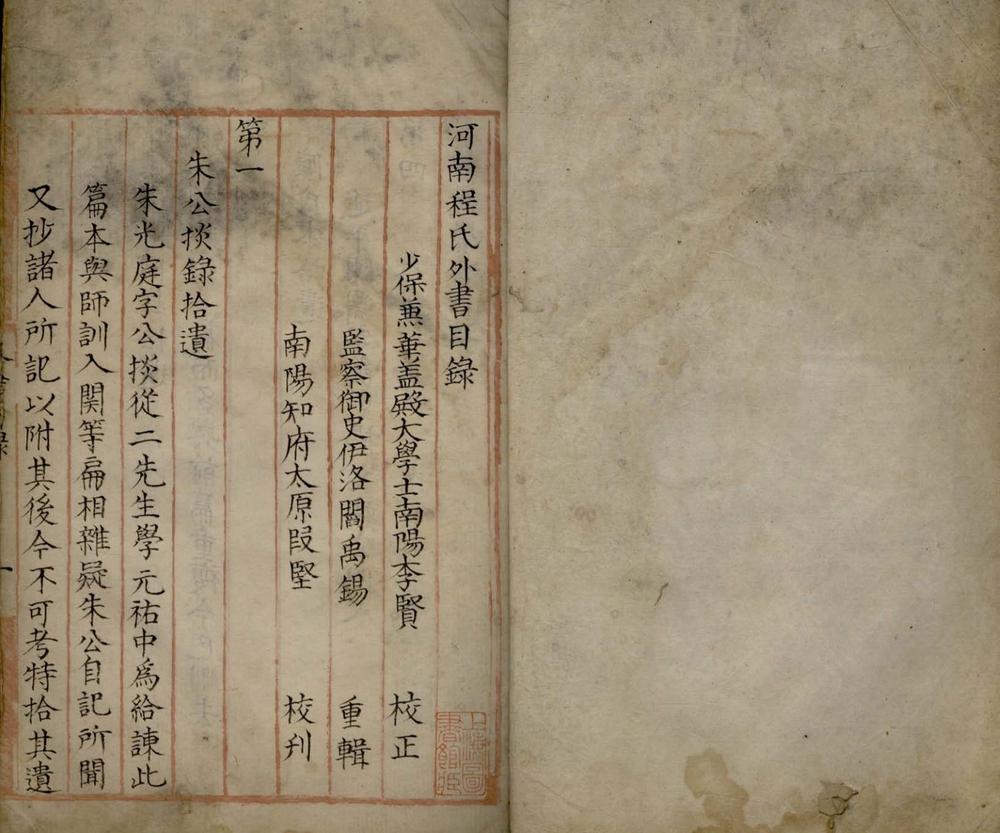 河南程氏外書目錄
少保兼華盖殿大學士南陽李賢 校正
監察御史伊洛閻禹錫 重輯
南陽知府太原段堅 校刋
第一
朱公掞錄拾遺
朱光庭字公掞從二先生學元祐中爲給諫此
篇本與師訓入関等扁相雜疑朱公自記所聞
又抄諸人所記以附其後今不可考特拾其遺